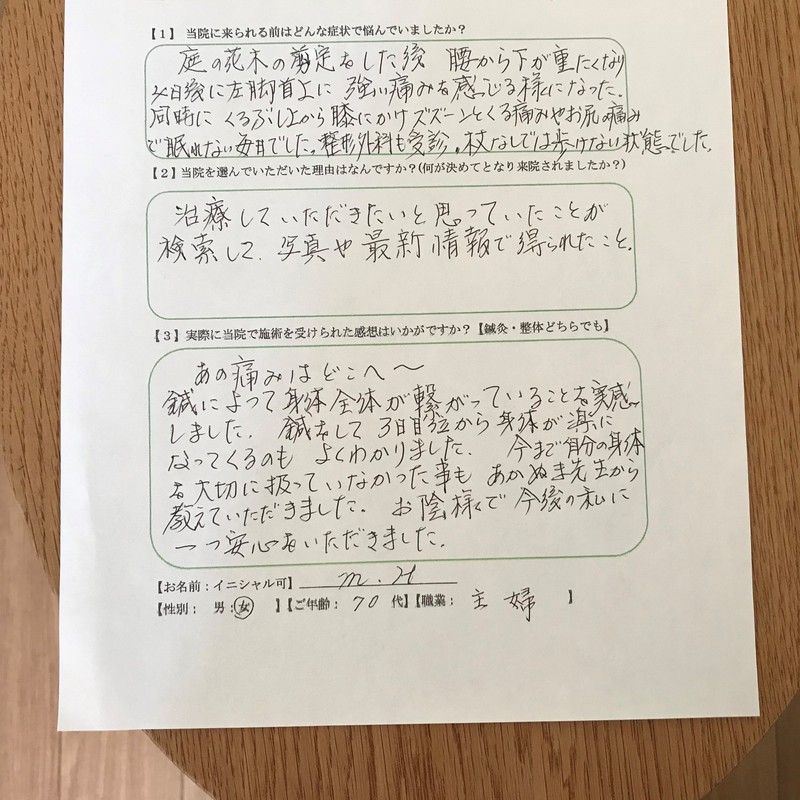 【1】 当院に来られる前はどんな症状で悩んでいましたか？
庭の花木の剪定をした後 腰から下が重たくなり
4日後に左脚首上に 強い痛みを感じる様になった。
同時に くるぶし上から膝にかけズズーンとくる痛みやお尻の痛み
で眠れない毎日でした。整形外科も受診。杖なしでは歩けない状態でした。
【2】当院を選んでいただいた理由はなんですか？(何が決めてとなり来院されましたか？)
治療していただきたいと思っていたことが
検索して、写真や最新情報で得られたこと。
【3】実際に当院で施術を受けられた感想はいかがですか？【鍼灸・整体どちらでも】
あの痛みはどこへ～
鍼によって身体全体が繋がっていることを実感
しました。 鍼をして 3日目位から身体が楽に
なってくるのも よくわかりました。 今まで自分の身体
を大切に扱っていなかった事も あかぬま先生から
教えていただきました。 お陰様で 今後の私に
一つ安心をいただきました。
【お名前：イニシャル可】 m.H
【性別： 男：女 】【ご年齢： 70 代】【職業： 主婦 】